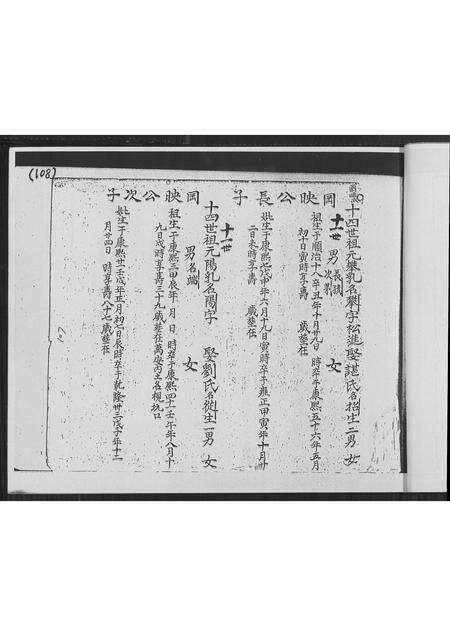 (108)
岡映公長子
十四世祖元攀乳名攀字松進娶諶氏名招生二男 女
十一世
男 長議
次〇 女
祖生于順治十八辛丑年十月廿九日 時卒于康熙五十六年五月
初十日寅時享壽 歲塟在
妣生于康熙 申年六月十九日寅時卒于雍正甲寅年十月廿
二日未時享壽 歲塟在
岡映公次子
十四世祖元陽乳名陽字 娶劉氏名從生一男 女
十一世
男名端 女
祖生于康熙三甲辰年 月 日 時卒于康熙四十一壬午年八月十
九日戌時享壽三十九歲塟在萬安內土名楓坑口
妣生于康熙廿一壬戌年五月初七日辰時卒于乾隆卅三戊子年十二
月廿四日 時享壽八十七歲塟在